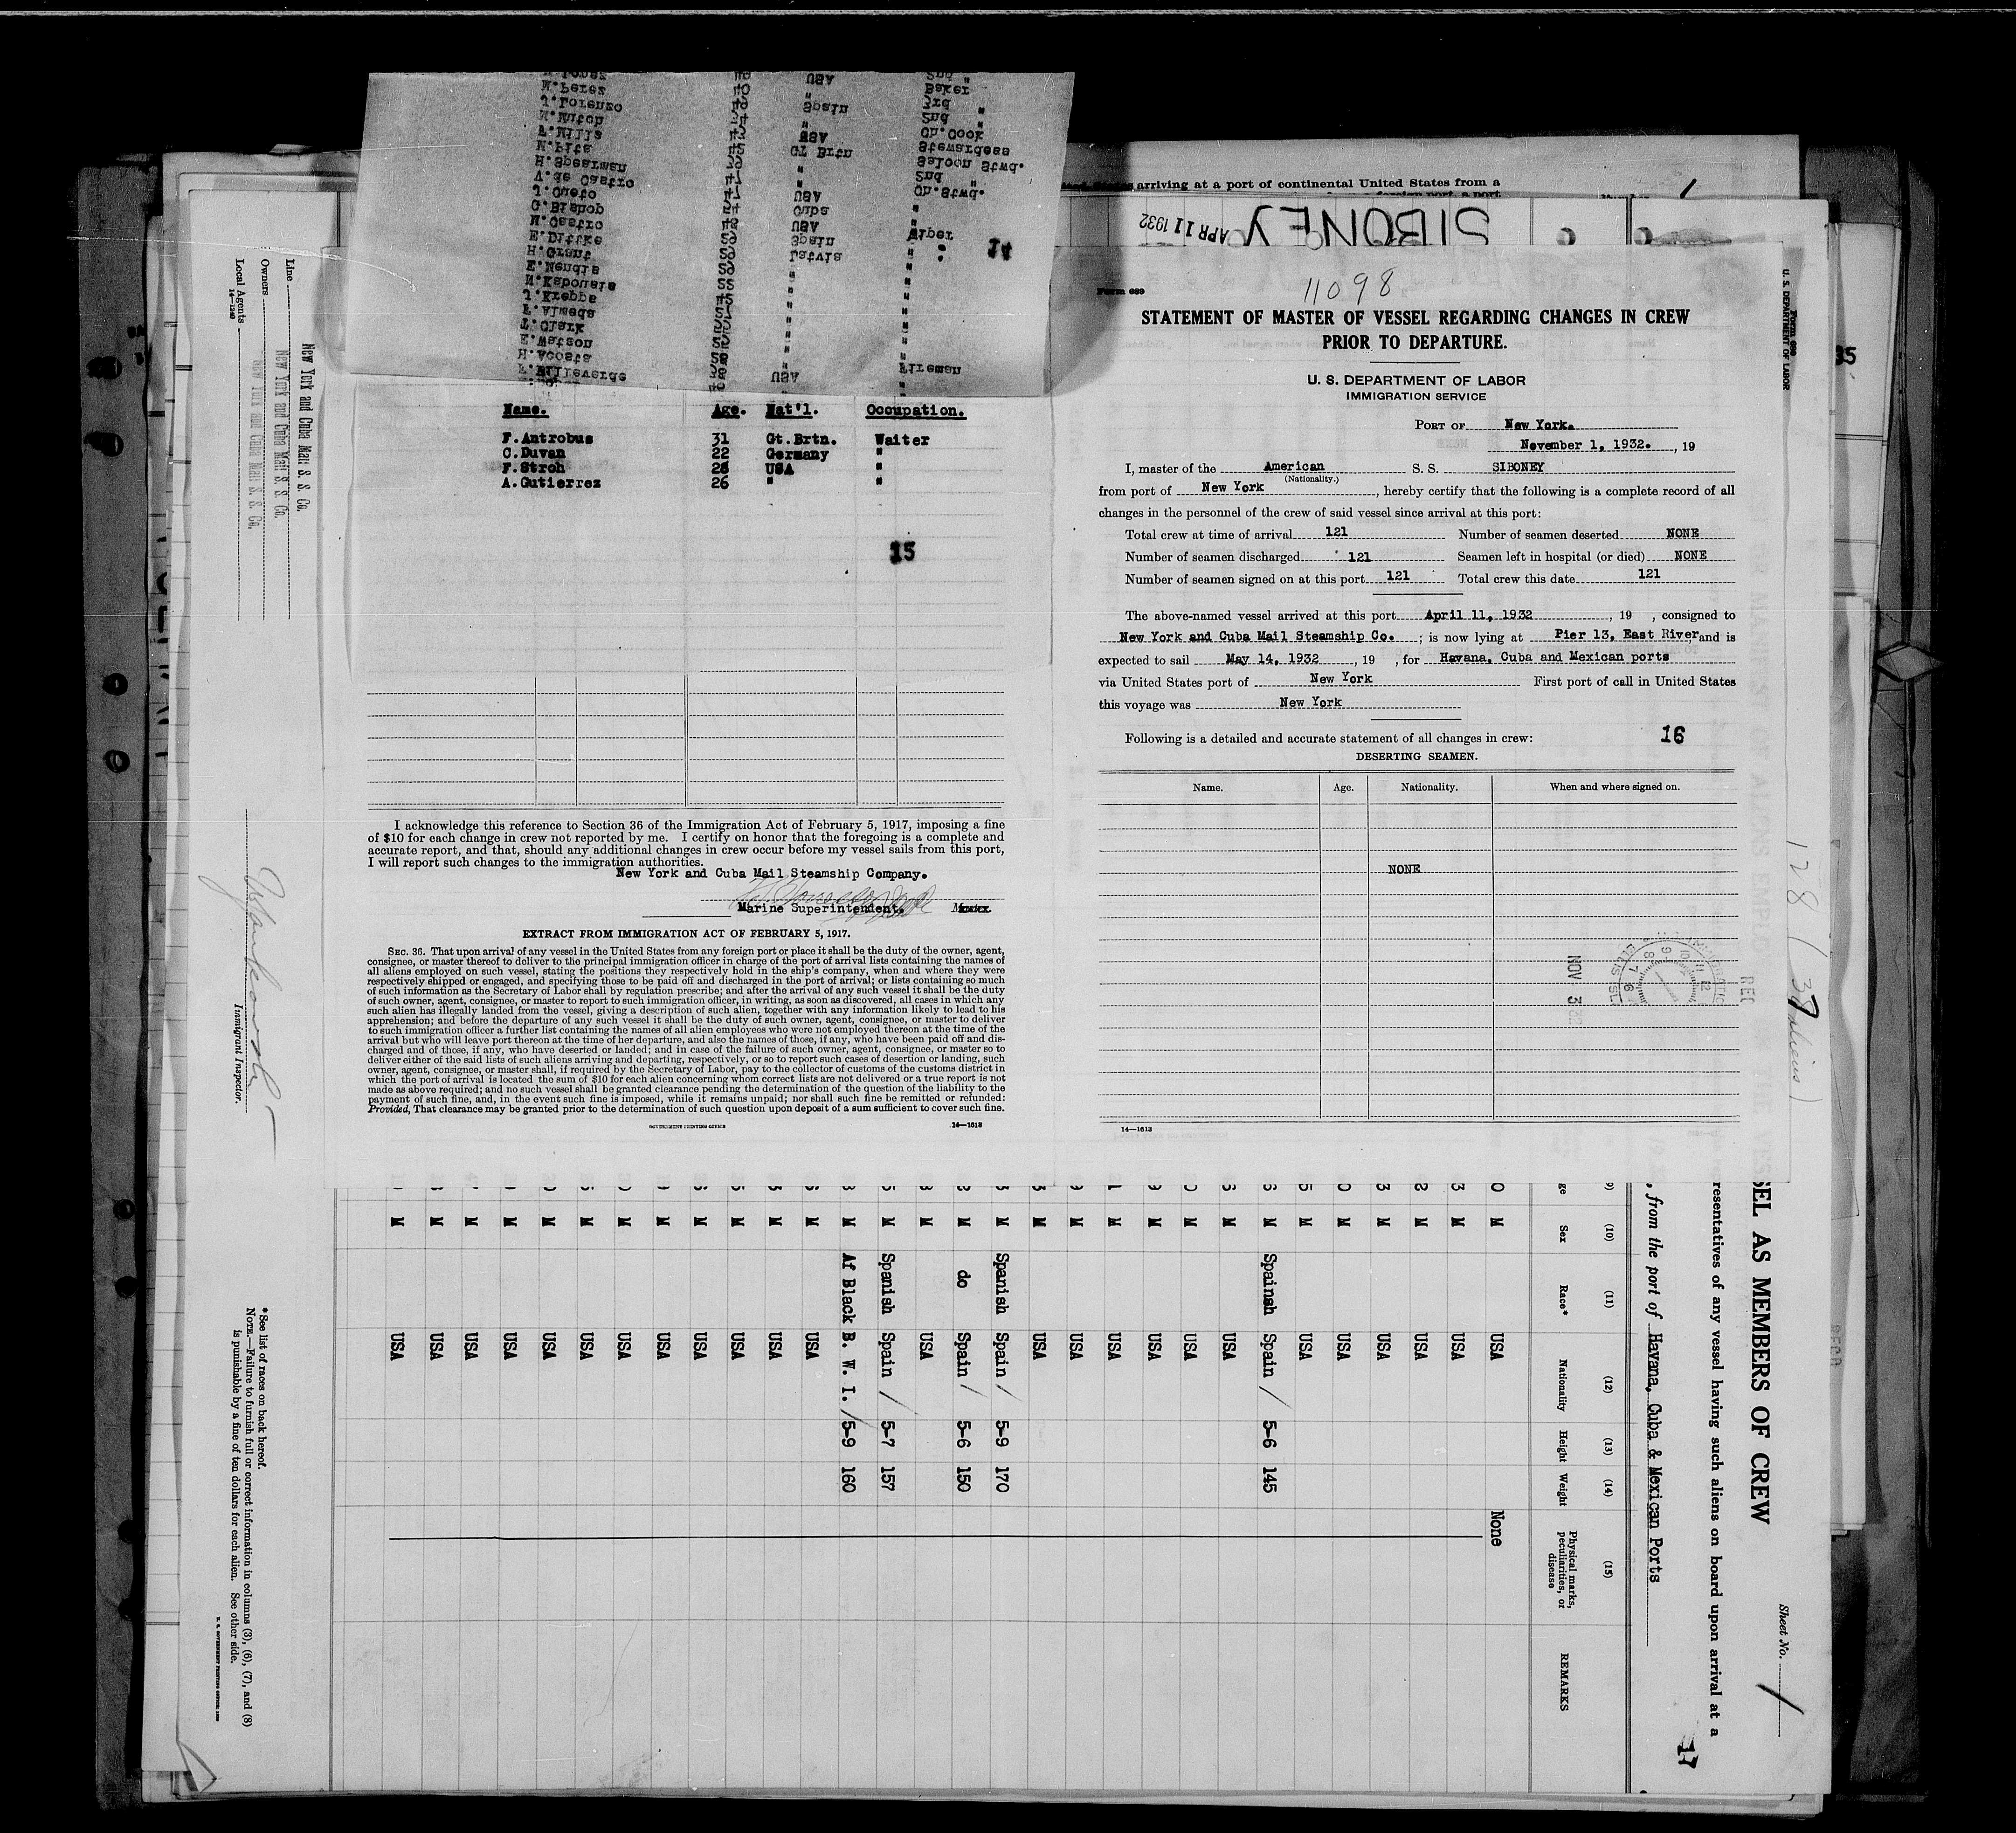 arriving at a port of continental United States from a
SIBONEY
APR 11 1932
Form 689
11098
STATEMENT OF MASTER OF VESSEL REGARDING CHANGES IN CREW
PRIOR TO DEPARTURE.
U. S. DEPARTMENT OF LABOR
IMMIGRATION SERVICE
PORT OF New York.
November 1, 1932. , 19
I, master of the American S. S. SIBONEY
(Nationality.)
from port of New York , hereby certify that the following is a complete record of all
changes in the personnel of the crew of said vessel since arrival at this port:
Total crew at time of arrival 121 Number of seamen deserted NONE
Number of seamen discharged 121 Seamen left in hospital (or died) NONE
Number of seamen signed on at this port 121 Total crew this date 121
The above-named vessel arrived at this port April 11, 1932 , 19 , consigned to
New York and Cuba Mail Steamship Co. ; is now lying at Pier 13, East River and is
expected to sail May 14, 1932 , 19 , for Havana, Cuba and Mexican ports
via United States port of New York First port of call in United States
this voyage was New York
Following is a detailed and accurate statement of all changes in crew: 16
DESERTING SEAMEN.
Name. Age. Nationality. When and where signed on.
NONE
NOV 3
14—1613
M. Perez 40 " Baker
J. Lorenzo 49 Spain 3rd "
F. Mills 43 USA Ch. Cook
N. Pita 45 Gt Brtn Stewardess
H. Spearman 39 " Saloon Stwd.
V. de Castro 47 " 2nd "
J. Cueto 47 USA Ch. Stwd.
G. Bishop 54 Cuba "
M. Castro 48 USA "
E. Dittke 29 Spain Wiper
H. Grant 29 Latvia "
14
E. Mendia
J. Kreppa
F. Almeda
T. Clark
E. Watson
H. Acosta
F. Villaverde USA Fireman
Name. Age. Nat'l. Occupation.
F. Antrobus 31 Gt. Brtn. Waiter
C. Duvan 22 Germany "
F. Stroh 28 USA "
A. Gutierrez 26 " "
15
I acknowledge this reference to Section 36 of the Immigration Act of February 5, 1917, imposing a fine
of $10 for each change in crew not reported by me. I certify on honor that the foregoing is a complete and
accurate report, and that, should any additional changes in crew occur before my vessel sails from this port,
I will report such changes to the immigration authorities.
New York and Cuba Mail Steamship Company.
Marine Superintendent. Master.
EXTRACT FROM IMMIGRATION ACT OF FEBRUARY 5, 1917.
SEC. 36. That upon arrival of any vessel in the United States from any foreign port or place it shall be the duty of the owner, agent,
consignee, or master thereof to deliver to the principal immigration officer in charge of the port of arrival lists containing the names of
all aliens employed on such vessel, stating the positions they respectively hold in the ship's company, when and where they were
respectively shipped or engaged, and specifying those to be paid off and discharged in the port of arrival; or lists containing so much
of such information as the Secretary of Labor shall by regulation prescribe; and after the arrival of any such vessel it shall be the duty
of such owner, agent, consignee, or master to report to such immigration officer, in writing, as soon as discovered, all cases in which any
such alien has illegally landed from the vessel, giving a description of such alien, together with any information likely to lead to his
apprehension; and before the departure of any such vessel it shall be the duty of such owner, agent, consignee, or master to deliver
to such immigration officer a further list containing the names of all alien employees who were not employed thereon at the time of the
arrival but who will leave port thereon at the time of her departure, and also the names of those, if any, who have been paid off and dis-
charged and of those, if any, who have deserted or landed; and in case of the failure of such owner, agent, consignee, or master so to
deliver either of the said lists of such aliens arriving and departing, respectively, or so to report such cases of desertion or landing, such
owner, agent, consignee, or master shall, if required by the Secretary of Labor, pay to the collector of customs of the customs district in
which the port of arrival is located the sum of $10 for each alien concerning whom correct lists are not delivered or a true report is not
made as above required; and no such vessel shall be granted clearance pending the determination of the question of the liability to the
payment of such fine, and, in the event such fine is imposed, while it remains unpaid; nor shall such fine be remitted or refunded:
Provided, That clearance may be granted prior to the determination of such question upon deposit of a sum sufficient to cover such fine.
GOVERNMENT PRINTING OFFICE 14—1613
Form 689
U. S. DEPARTMENT OF LABOR
35
128 (37 aliens)
Sheet No. 1
SEL AS MEMBERS OF CREW
resentatives of any vessel having such aliens on board upon arrival at a
, from the port of Havana, Cuba & Mexican Ports
17
(10) (11) (12) (13) (14) (15)
Sex Race* Nationality Height Weight Physical marks, peculiarities, or disease REMARKS
M USA None
M USA
M USA
M USA
M USA
M USA
M Spainsh Spain / 5-6 145
M USA
M USA
M USA
M USA
M USA
M USA
M Spanish Spain / 5-9 170
M do Spain / 5-6 150
M USA
M Spanish Spain / 5-7 157
M Af Black B. W. I. / 5-9 160
M USA
M USA
M USA
M USA
M USA
M USA
M USA
M USA
M USA
M USA
M USA
M USA
New York and Cuba Mail S. S. Co.
Line New York and Cuba Mail S. S. Co.
Owners New York and Cuba Mail S. S. Co.
Local Agents
14—1240
Immigrant Inspector.
*See list of races on back hereof.
NOTE.—Failure to furnish full or correct information in columns (3), (6), (7), and (8)
is punishable by a fine of ten dollars for each alien. See other side.